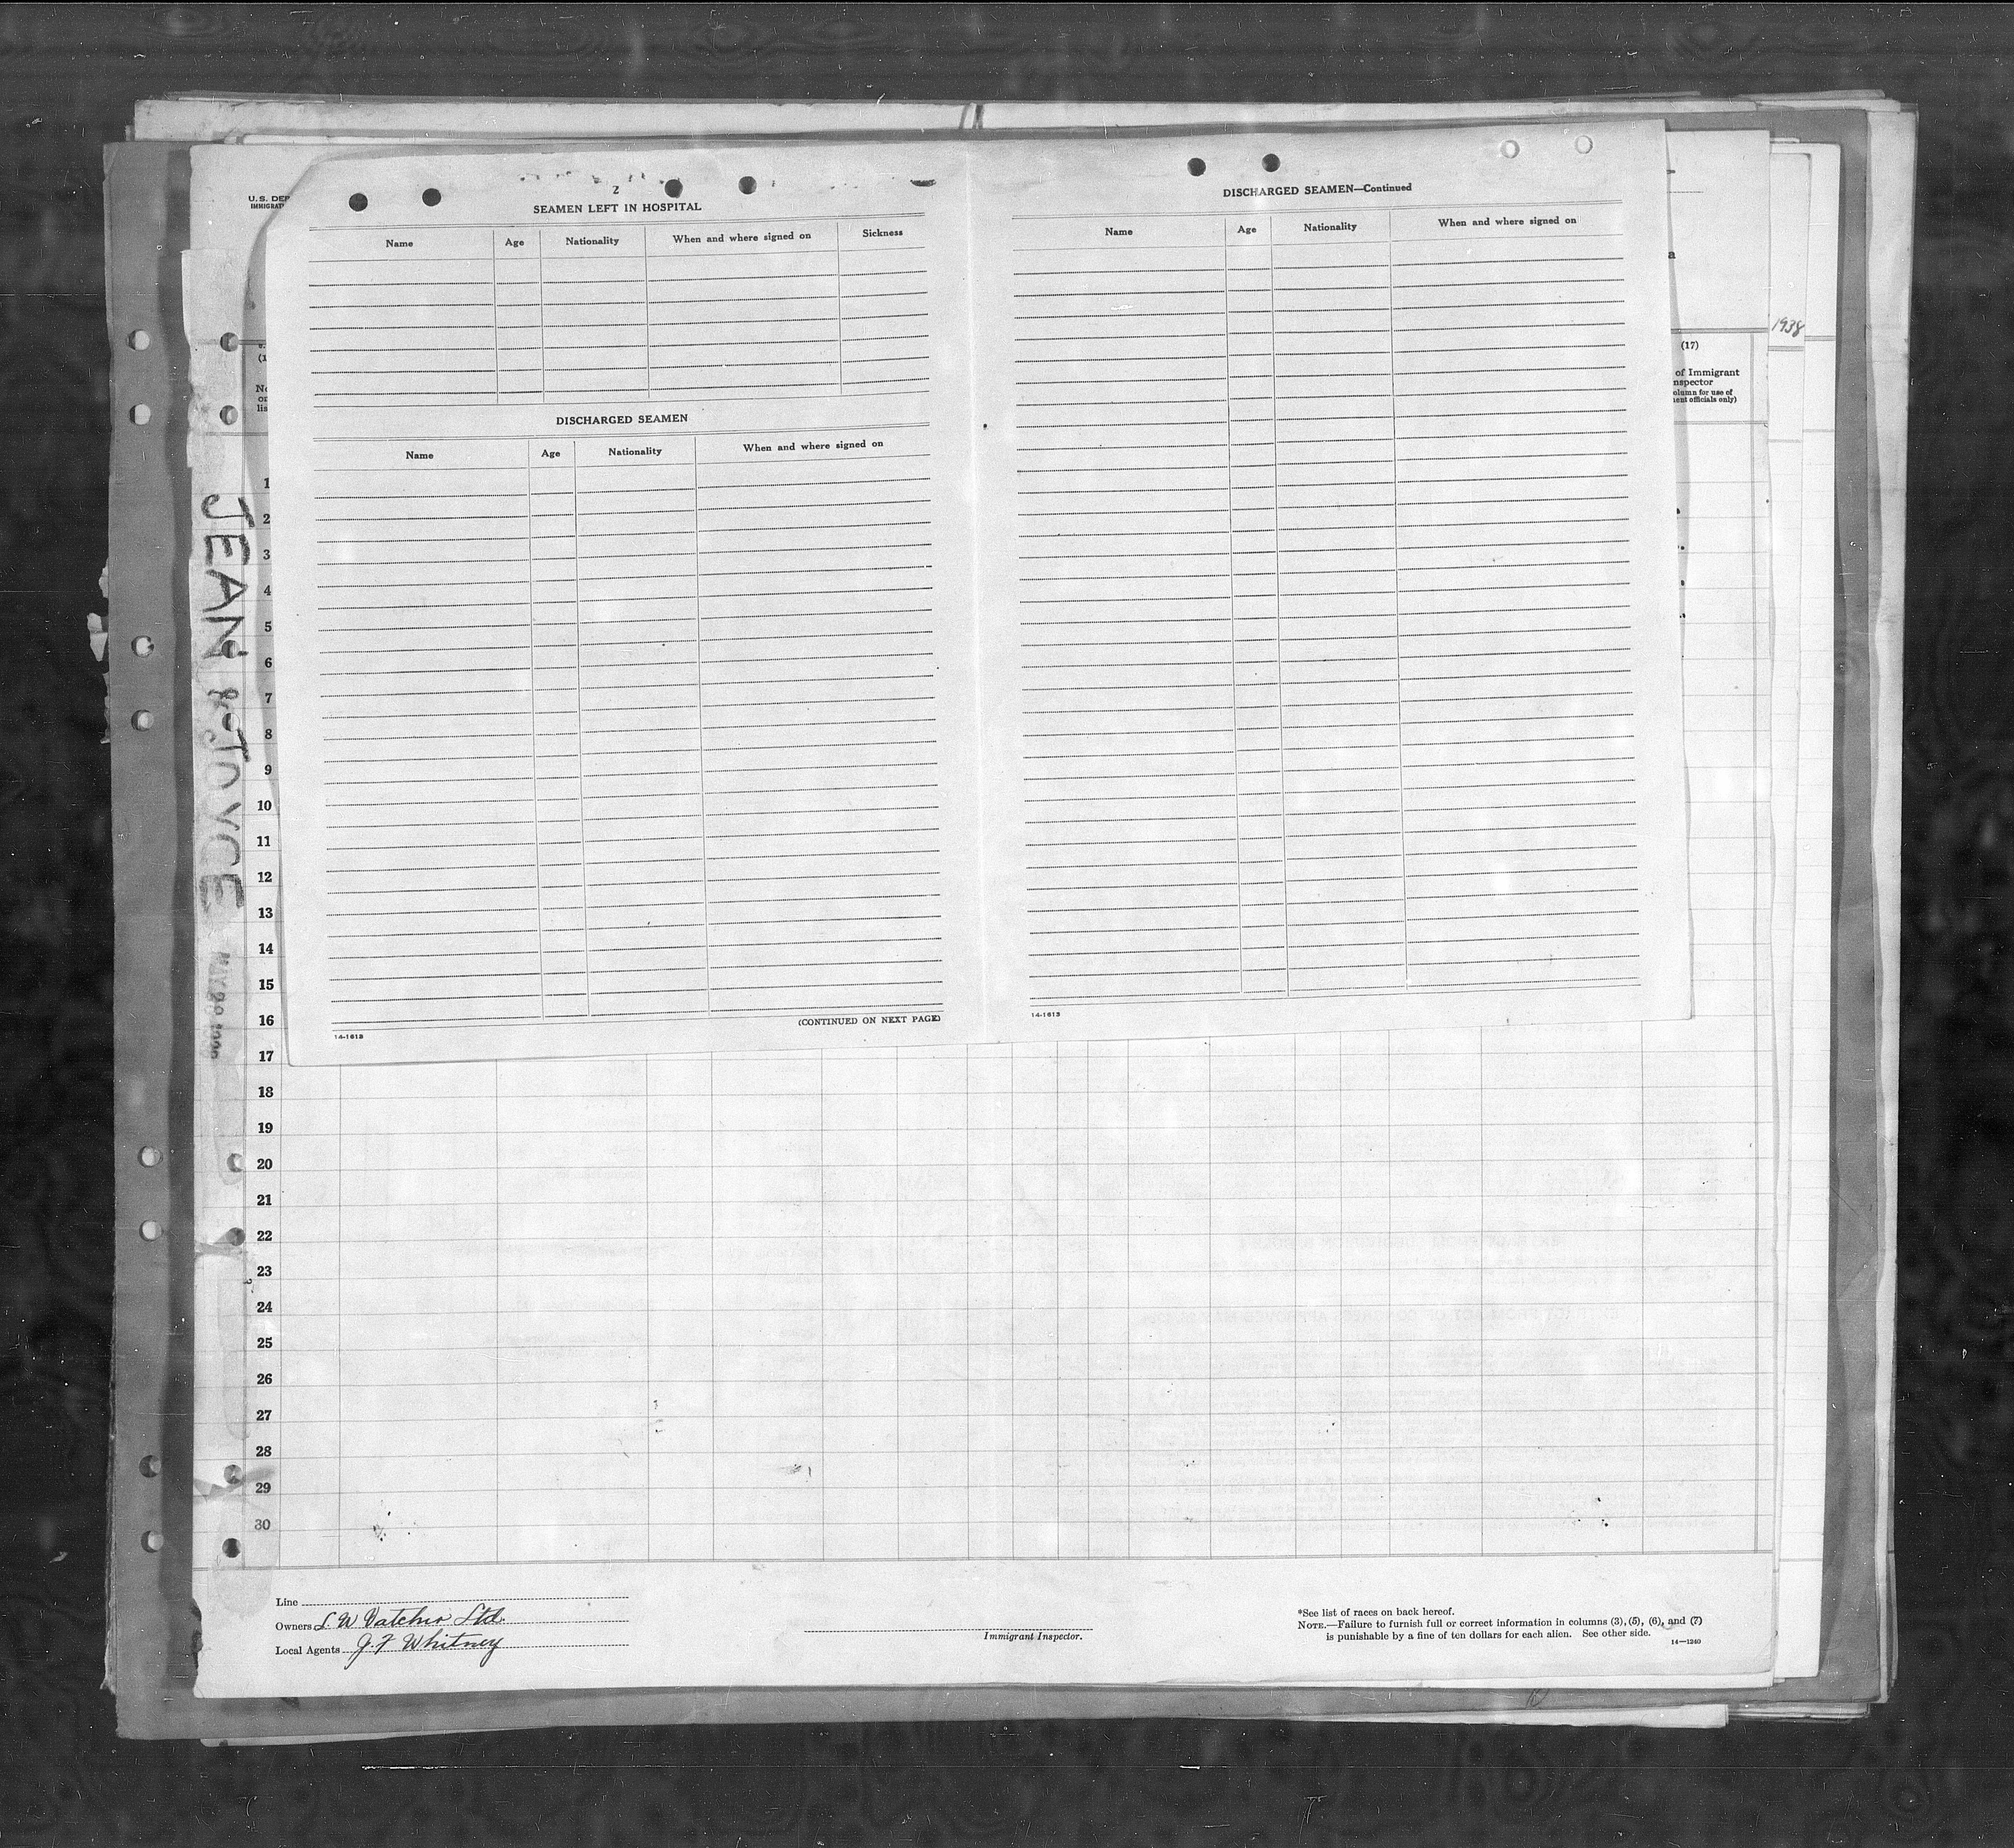 U.S. DEP
IMMIGRAT
2
SEAMEN LEFT IN HOSPITAL
Name Age Nationality When and where signed on Sickness
DISCHARGED SEAMEN
Name Age Nationality When and where signed on
(CONTINUED ON NEXT PAGE)
14-1613
DISCHARGED SEAMEN—Continued
Name Age Nationality When and where signed on
14-1613
a
1938
(17)
of Immigrant
nspector
olumn for use of
ent officials only)
(1
No
on
lis
JEAN & JOYCE
1
2
3
4
5
6
7
8
9
10
11
12
13
14
15
16
17
18
19
20
21
22
23
24
25
26
27
28
29
30
Line
Owners L. W Vatcher Ltd.
Local Agents J. F Whitney
Immigrant Inspector.
*See list of races on back hereof.
NOTE.—Failure to furnish full or correct information in columns (3), (5), (6), and (7)
is punishable by a fine of ten dollars for each alien. See other side.
14—1240